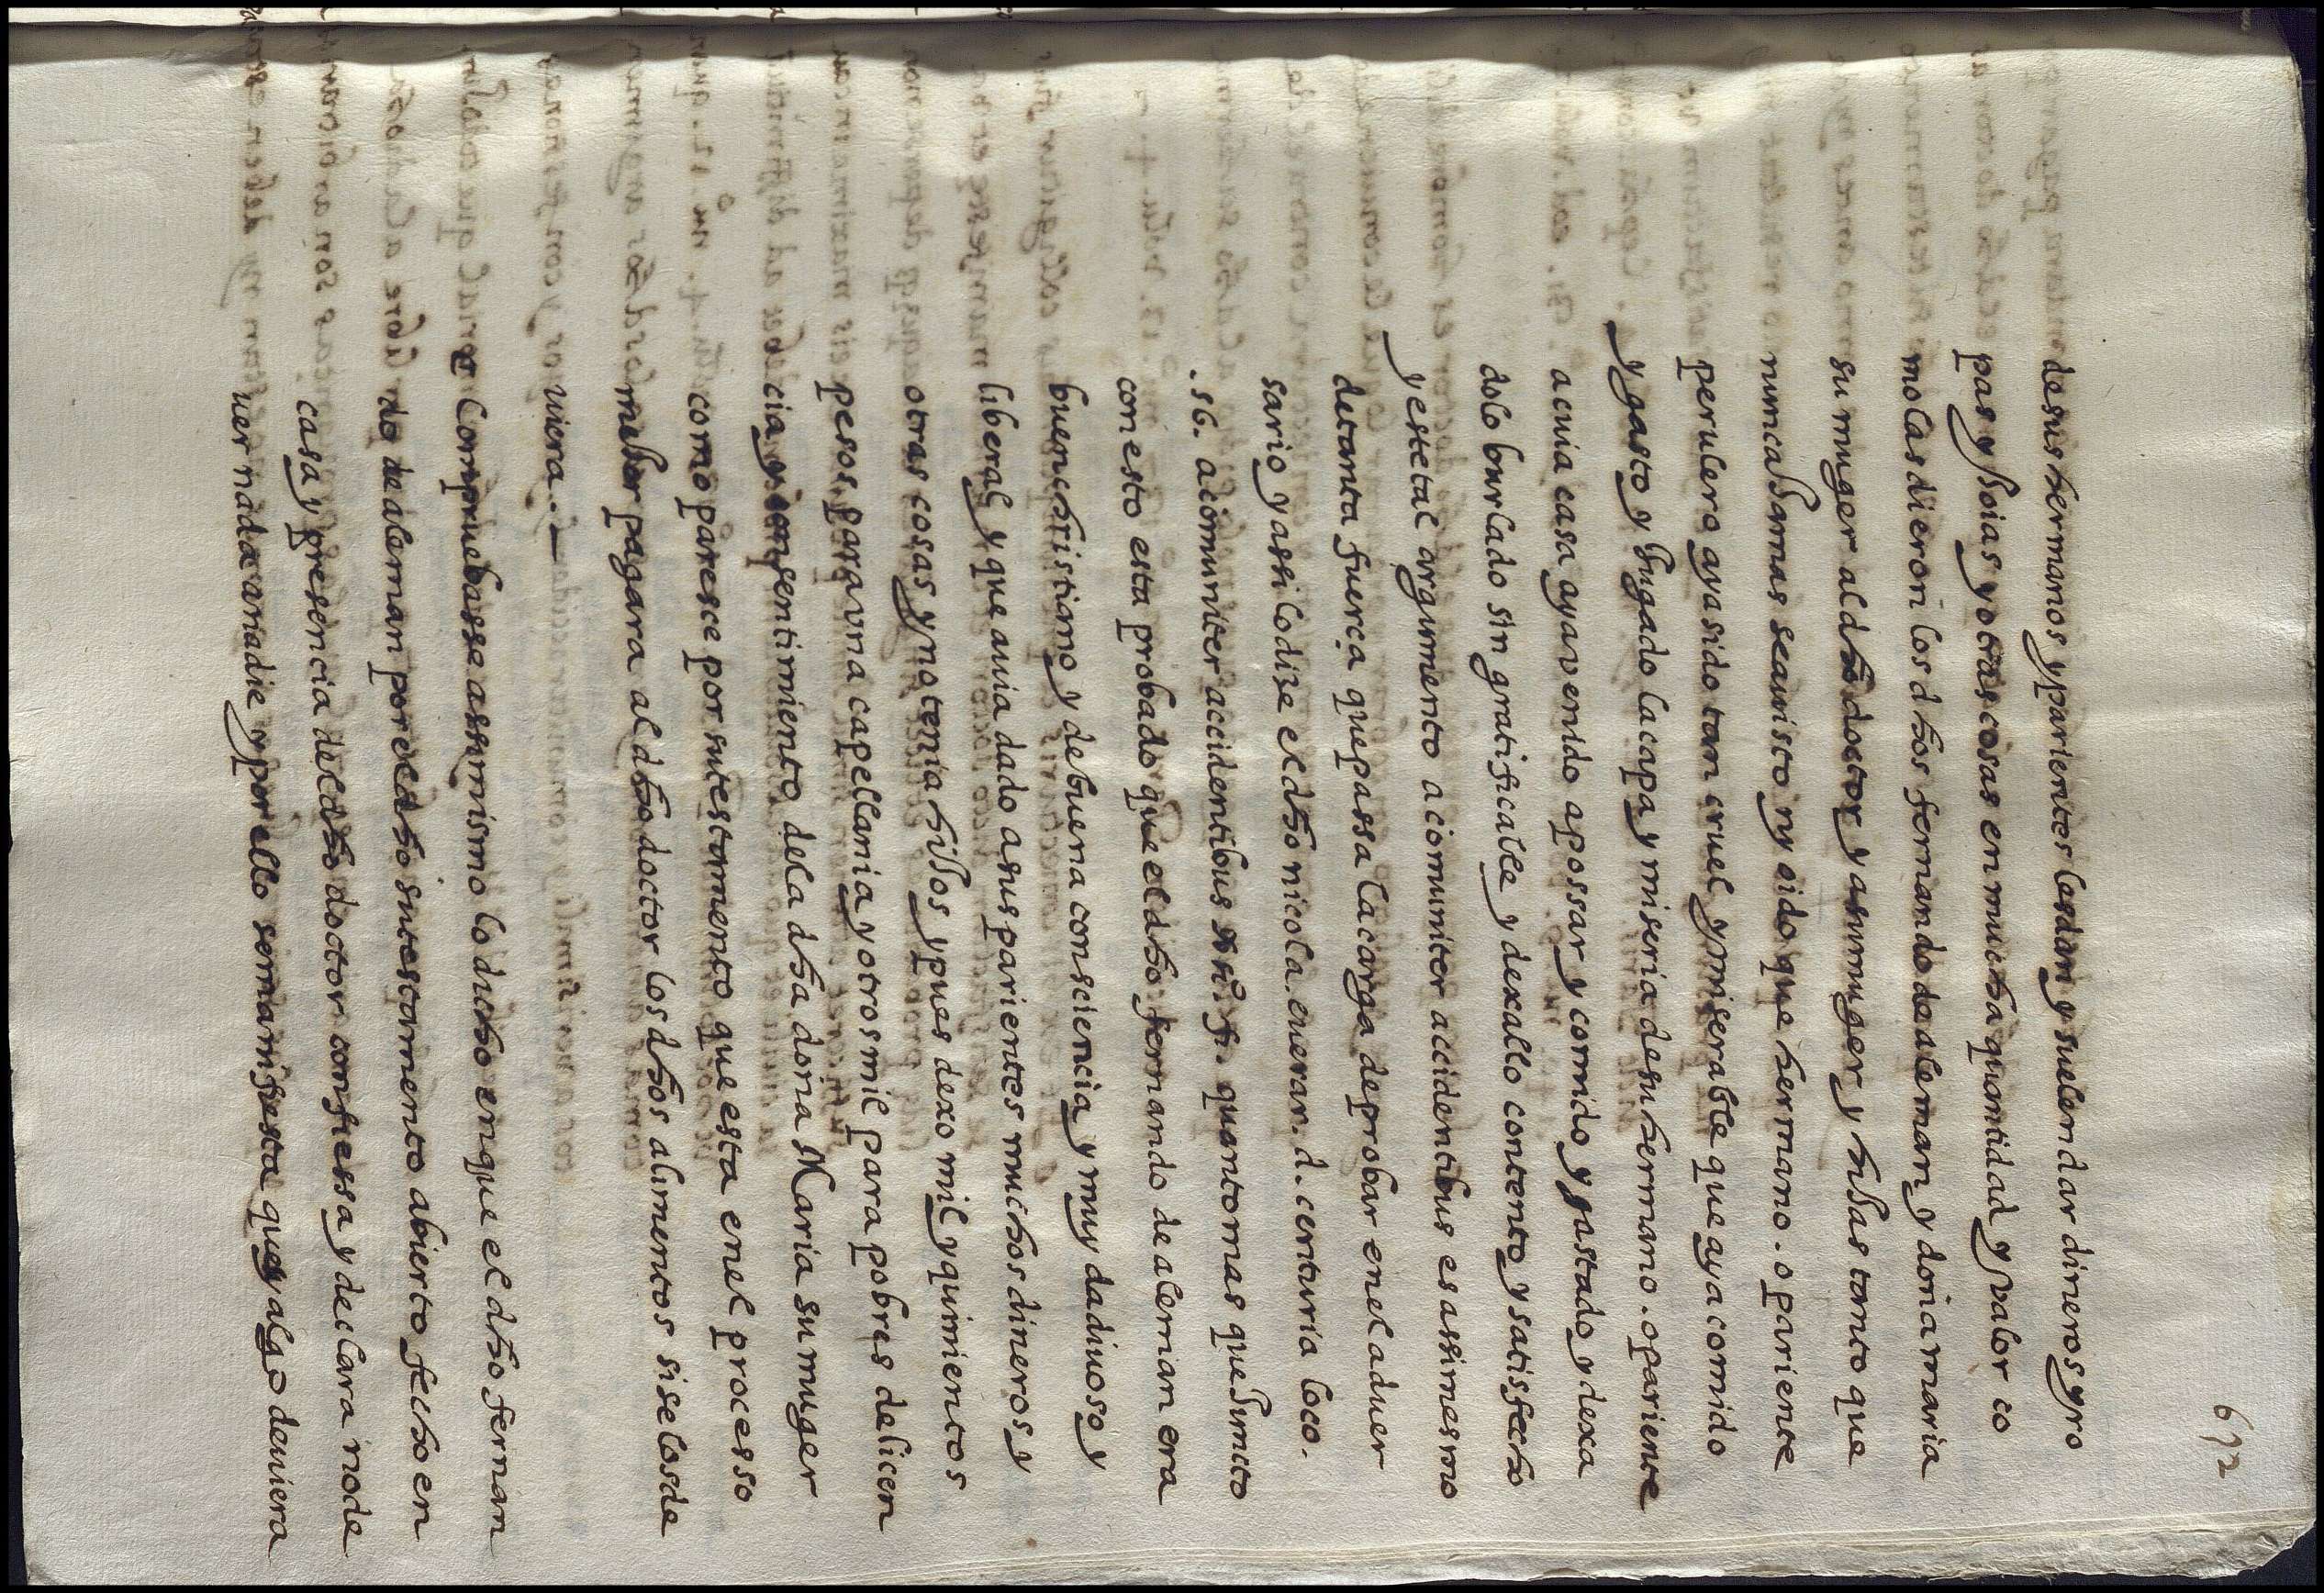 672
de sus hermanos y parientes les dan y suelen dar dineros y ro
pas y joias y otras cosas en mucha quantidad y valor co
mo las dieron los dhos fernando de aleman y doña maria
su muger al dho doctor y a su muger y hijas tanto que
nunca jamas se a visto ny oido que hermano . o pariente
perulero aya sido tan cruel y miserable que aya comido
y gasto y jugado la capa y miseria de su hermano . o pariente
a cuia casa aya venido a possar y comido y gastado y dexa
dolo burlado sin gratificalle y dexallo contento y satisfecho
y este tal argumento a comuniter accidentibus es assimesmo
de tanta fuerça que passa la carga de probar en el aduer
sario y assi lo dize el dho nicola. euerar. d. centuria loco.
.56. a comuniter accidentibus fi. quanto mas que junto
con esto esta probado que el dho fernando de aleman era
buen christiano y de buena consciencia y muy dadiuoso y
liberal y que auia dado a sus parientes muchos dineros y
otras cosas y no tenia hijos y pues dexo mil y quinientos
pesos para vna capellania y otros mil para pobres de licen
cia y consentimiento de la dha doña Maria su muger
como paresce por su testamento que esta en el processo
mejor pagara al dho doctor los dhos alimentos si se los de
uiera . —
Compruebasse assimismo lo dicho en que el dho fernan
do de aleman por el dho su testamento abierto fecho en
casa y presencia del dho doctor confiessa y declara no de
uer nada a nadie y por ello se manifiesta que si algo deuiera